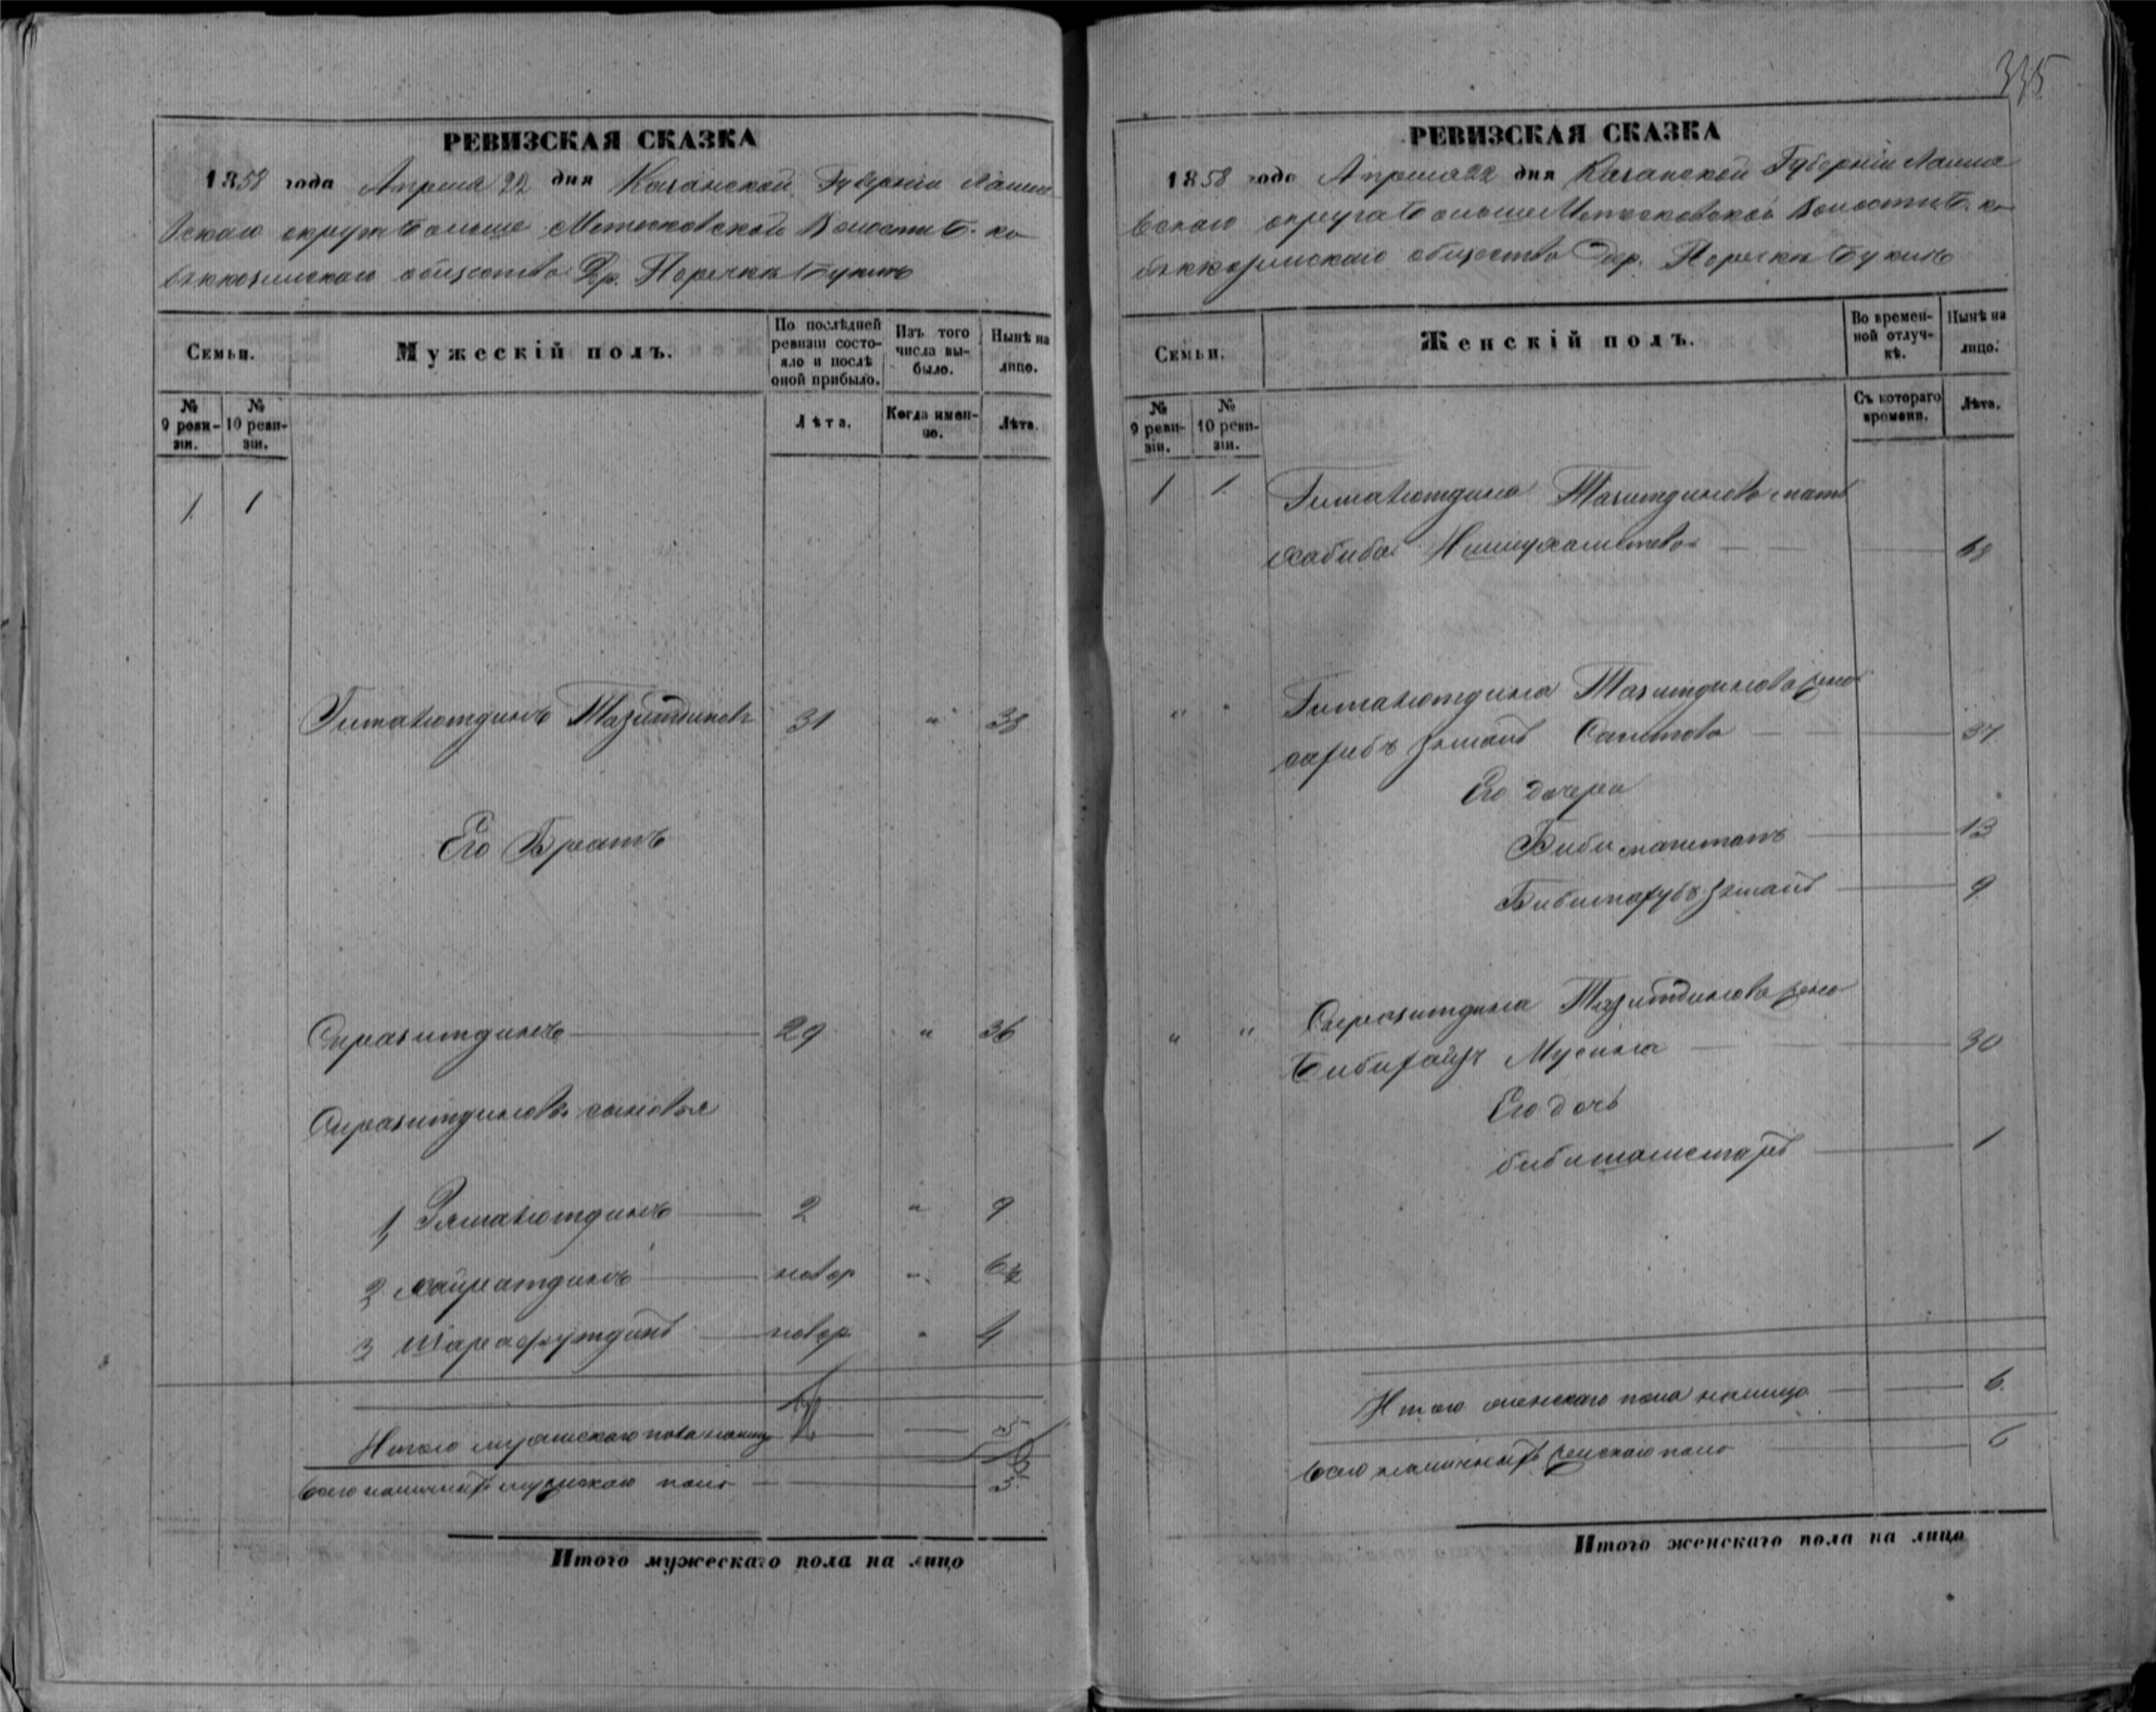 335
РЕВИЗСКАЯ СКАЗКА
1858 года Апреля 22 дня Казанской Губерніи Лаише
вскаго округа Больше Метесковской Волости Б. ко
баккозинскаго общества Др. Поречки Букинъ
Семьи.
Мужескій полъ.
По послѣдней ревизіи состояло и послѣ оной прибыло.
Изъ того числа выбыло.
Нынѣ на лицо.
№ 9 ревизіи.
№ 10 ревизіи.
Лѣта.
Когда именно.
Лѣта.
1 1
Гиматютдинъ Тазитдиновъ 31 " 38
Его Братъ
Сиразитдинъ 29 " 36
Сиразитдинова сыновья
1, Зяматютдинъ 2 " 9
2 хайретдинъ новор " 6½
3 Шарафутдинъ новор " 4
Итого мужескаго пола налицо 5
Всего наличныхъ мужскаго пола 5.
Итого мужескаго пола на лицо
РЕВИЗСКАЯ СКАЗКА
1858 года Апреля 22 дня Казанской Губерніи Лаише
вскаго округа Больше Метесковской Волости Б. ко
баккозинскаго общества Дер. Поречки Букинъ
Семьи.
Женскій полъ.
Во временной отлучкѣ.
Нынѣ на лицо.
№ 9 ревизіи.
№ 10 ревизіи.
Съ котораго времени.
Лѣта.
1 1. Гиматютдина Тазитдинова мать
хабиба 68
" " Гиматютдина Тазитдинова жена
Сагитова 37
Его дочери
13
9
" " Сиразитдина Тазитдинова жена
Мусина 30
Его дочь
1
Итого женскаго пола налицо 6.
Всего наличныхъ женскаго пола 6
Итого женскаго пола на лицо